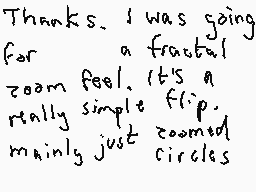 Thanks. I was going
for a fractal
zoom feel. It's a
really simple flip.
mainly just zoomed
circles